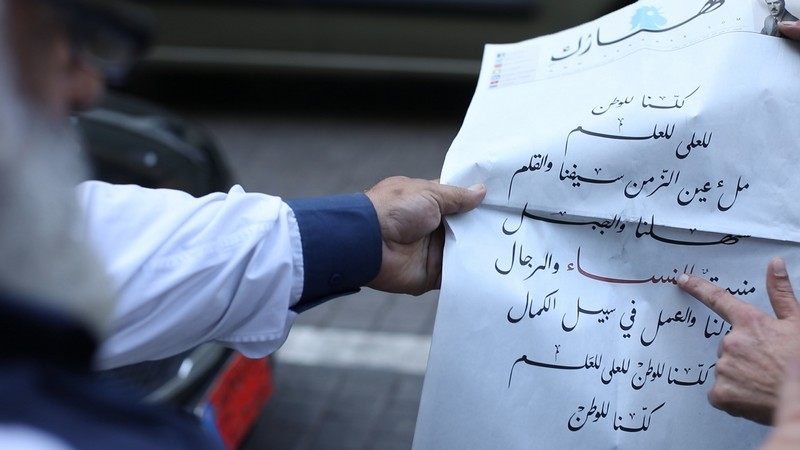 نهارك
كلّنا للوطن
للعلى للعلم
ملء عين الزّمن سيفنا والقلم
سهلنا والجبل
منبتٌ للنساء والرجال
قولنا والعمل في سبيل الكمال
كلّنا للوطن للعلى للعلم
كلّنا للوطن